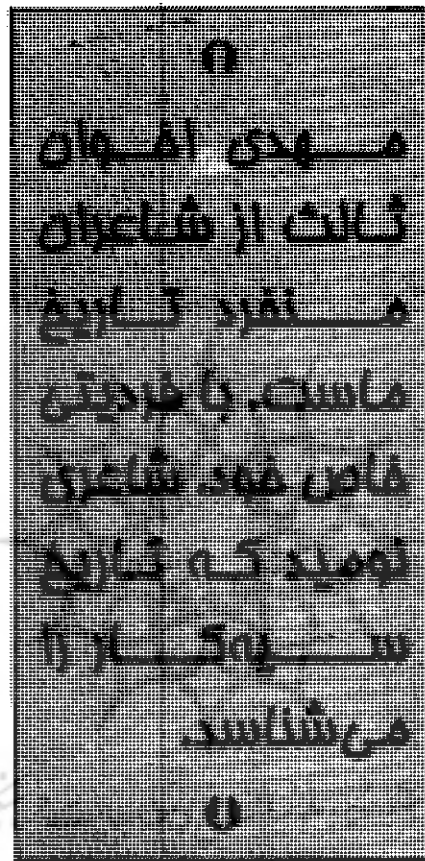 مهدی اخوان
ثالث از شاعران
منفرد تاریخ
ماست. با فردیتی
خاص خود. شاعری
نومید که تاریخ
سیه‌کار را
می‌شناسد.